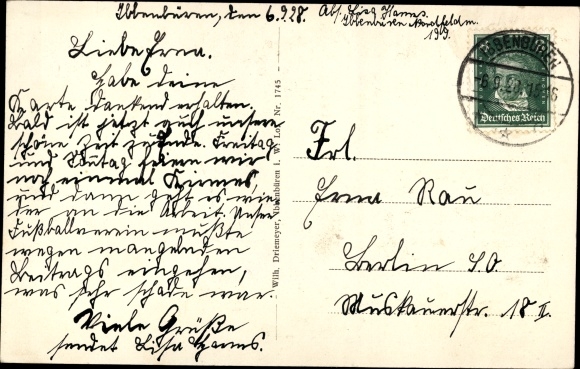 Ibbenbüren, den 6.9.28.
Abs. Lisa Hanns.
Ibbenbüren Nordfeldm.
139.
Liebe Erna.
Habe deine
Karte dankend erhalten.
Bald ist jetzt auch unsere
schöne Zeit zuende. Freitag
und Sonntag feiern wir
noch einmal Kirmes,
und dann geht es wie-
der an die Arbeit. Unser
Fußballverein mußte
wegen mangelnden
Beitrags eingehen,
was sehr schade war.
Viele Grüße
sendet Lisa Hanns.
Wilh. Driemeyer, Ibbenbüren i. W. Lott Nr. 1745
IBBENBÜREN
Deutsches Reich
Frl.
Erna Rau
Berlin S.O.
Muskauerstr. 18 II.